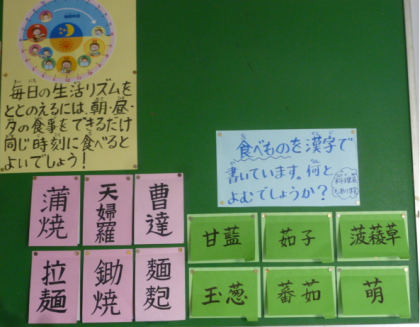 毎日の生活リズムを
ととのえるには、朝・昼・
夕の食事をできるだけ
同じ時刻に食べると
よいでしょう！
食べものを漢字で
書いています。何と
よむでしょうか？
蒲焼
天婦羅
曹達
拉麺
鋤焼
麵麭
甘藍
茄子
菠薐草
玉葱
蕃茄
萌